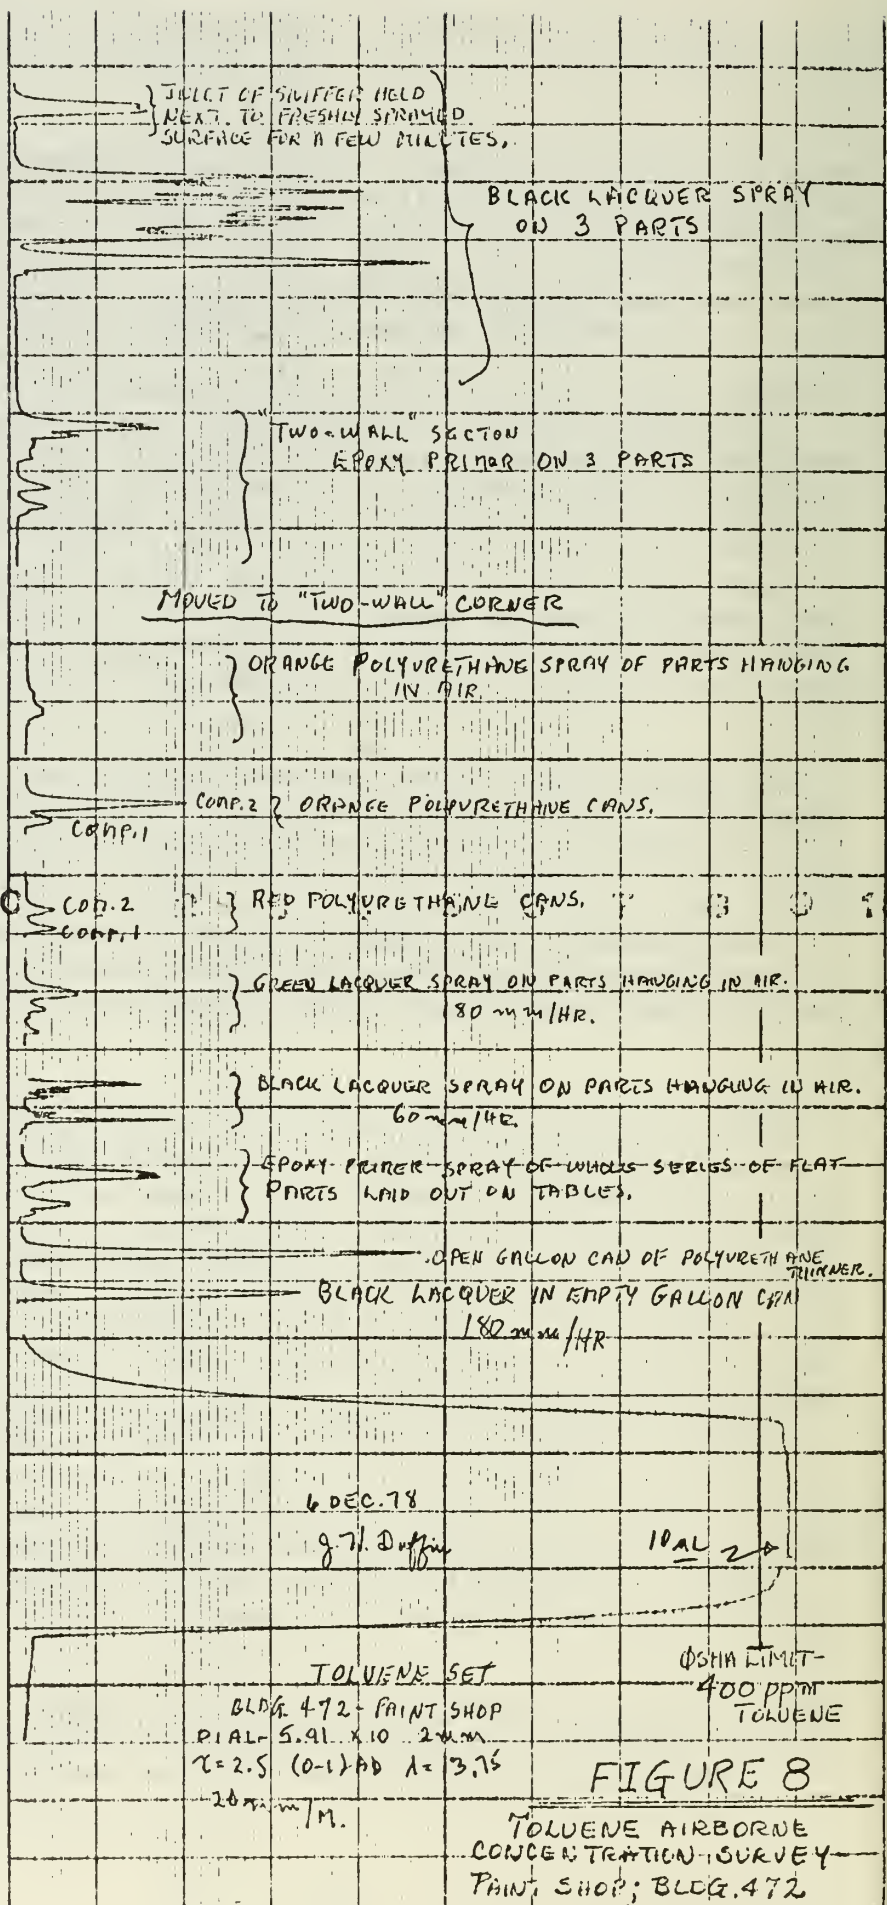 INLET OF SNIFFER HELD
NEXT TO FRESHLY SPRAYED
SURFACE FOR A FEW MINUTES.
BLACK LACQUER SPRAY
ON 3 PARTS
"TWO-WALL" SECTON
EPOXY PRIMER ON 3 PARTS
MOVED TO "TWO-WALL" CORNER
ORANGE POLYURETHANE SPRAY OF PARTS HANGING
IN AIR
COMP.2 ORANGE POLYURETHANE CANS.
COMP.1
COM.2 RED POLYURETHANE CANS.
COMP.1
GREEN LACQUER SPRAY ON PARTS HANGING IN AIR.
180 mm/HR.
BLACK LACQUER SPRAY ON PARTS HANGING IN AIR.
60 mm/HR.
EPOXY PRIMER SPRAY OF WHOLE SERIES OF FLAT
PARTS LAID OUT ON TABLES.
OPEN GALLON CAN OF POLYURETHANE
THINNER.
BLACK LACQUER IN EMPTY GALLON CAN
180 mm/HR
6 DEC. 78
J. H. Duffin
10 µL
OSHA LIMIT-
400 ppm
TOLUENE
TOLUENE SET
BLDG. 472 - PAINT SHOP
DIAL- 5.91 x 10 2mm
τ=2.5 (0-1)AD λ= 13.75
20 mm/M.
FIGURE 8
TOLUENE AIRBORNE
CONCENTRATION SURVEY
PAINT SHOP; BLDG.472